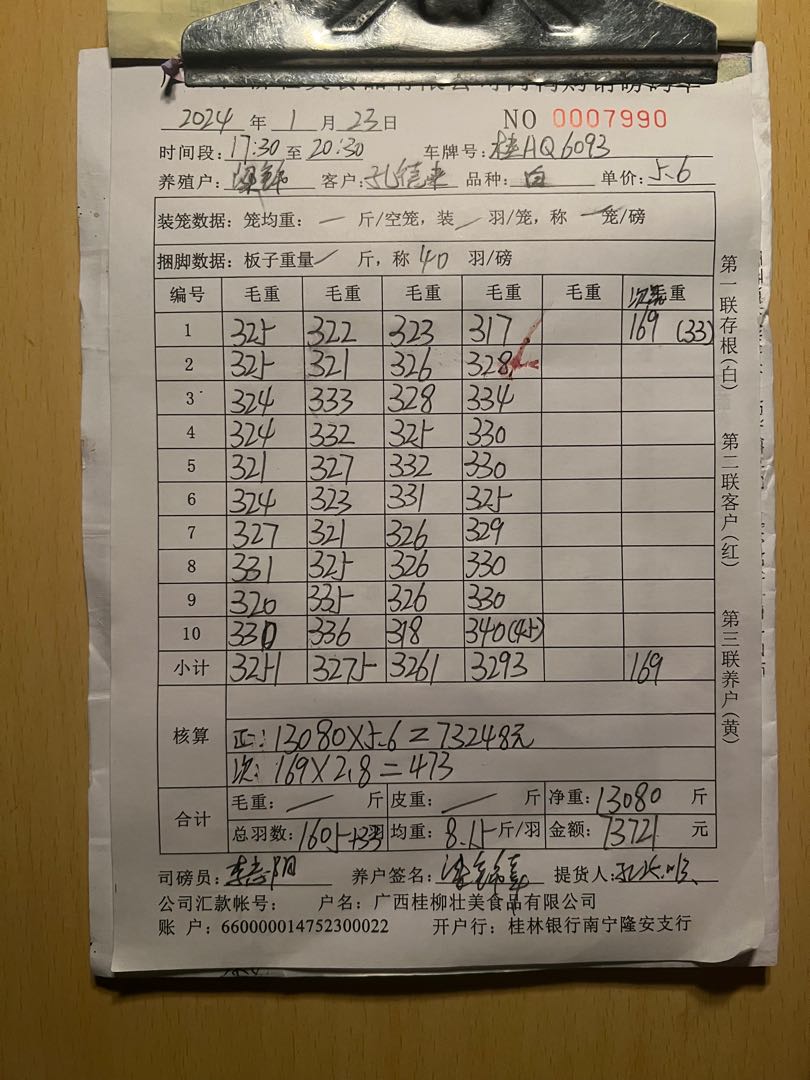 2024 年 1 月 23 日 NO 0007990
时间段: 17:30 至 20:30 车牌号: 桂AQ6093
养殖户: 客户: 孔德来 品种: 白 单价: 5.6
装笼数据: 笼均重: 一 斤/空笼, 装 / 羽/笼, 称 一 笼/磅
捆脚数据: 板子重量 / 斤, 称 40 羽/磅
编号 毛重 毛重 毛重 毛重 毛重 毛重
1 325 322 323 317 169 (33)
2 325 321 326 328
3 324 333 328 334
4 324 332 325 330
5 321 327 332 330
6 324 323 331 325
7 327 321 326 329
8 331 325 326 330
9 320 335 326 330
10 330 336 318 340(45)
小计 3251 3275 3261 3293 169
核算
正: 13080×5.6=73248元
次: 169×2.8=473
合计
毛重: 一 斤 皮重: 一 斤 净重: 13080 斤
总羽数: 1605+33 均重: 8.15 斤/羽 金额: 73721 元
司磅员: 养户签名: 提货人:
公司汇款帐号: 户名: 广西桂柳壮美食品有限公司
账 户: 660000014752300022 开户行: 桂林银行南宁隆安支行
第一联存根(白)
第二联客户(红)
第三联养户(黄)